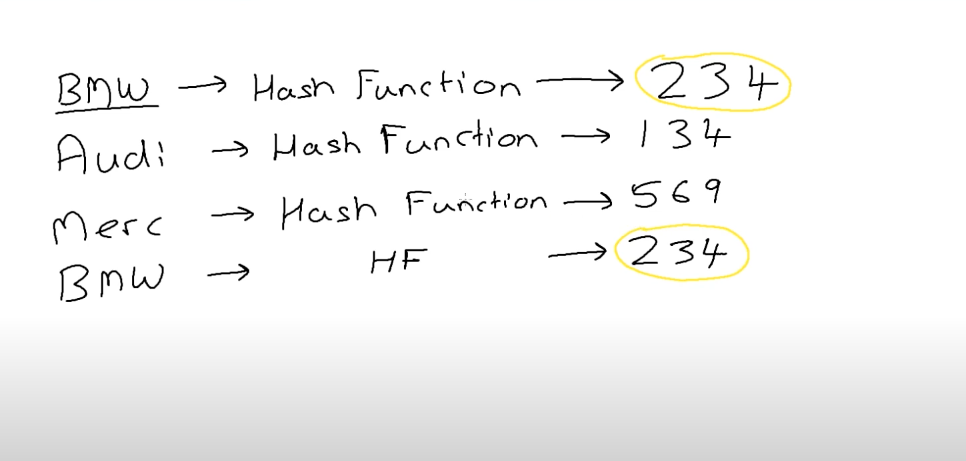 BMW → Hash Function → 234
Audi → Hash Function → 134
Merc → Hash Function → 569
BMW → HF → 234